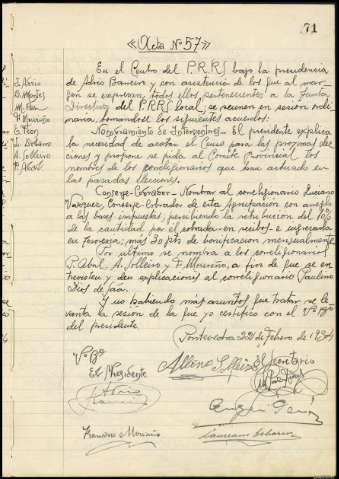 71
«Acta Nº 57»
En el Centro del P.R.R.S bajo la presidencia
de Adrio Barreiro y con asistencia de los que al mar-
gen se expresan, todos ellos pertenecientes a la Junta
Directiva del P.R.R.S local, se reunen en sesion ordi-
naria, tomandose los siguientes acuerdos:
Nombramiento de Interventores.- El presidente explica
la necesidad de acabar el Censo para las proximas elec-
ciones y propone se pida al Comite Provincial los
nombres de los correligionarios que han actuado en
las pasadas elecciones.
Conserje-Cobrador.- Nombrar al correligionario Luciano
Vazquez, Conserje-Cobrador de esta Agrupacion con arreglo
a las bases impuestas, percibiendo la retribucion del 10%
de la cantidad por el cobrada en recibos e ingresada
en Tesoreria; mas 30 pts de bonificacion mensualmente.
Por ultimo se nomina a los correligionarios
P. Abril, A. Solleiro y F. Mouriño, a fin de que se en-
trevisten y den explicaciones al correligionario Paulino
Y no habiendo mas asuntos que tratar se le-
vanta la sesion de la que yo certifico con el Vº Bº
del presidente.
Pontevedra 22 de Febrero de 1934
Vº Bº
El Presidente
El Secretario
Francisco Mouriño
A. Adrio
B. Montes
F. Mouriño
A. Solleiro
P. Abril